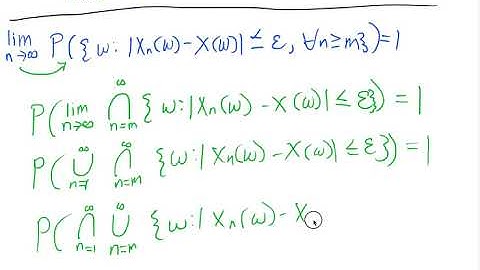 lim n→∞ P({ω: |Xn(ω)-X(ω)| ≤ ε, ∀n≥m})=1
P(lim n→∞ ∞ ⋂ n=m {ω:|Xn(ω) - X(ω)| ≤ ε}) = 1
P(∞ ⋃ n=1 ∞ ⋂ n=m {ω:|Xn(ω) - X(ω)| ≤ ε}) = 1
P(∞ ⋂ n=1 ∞ ⋃ n=m {ω:| Xn(ω) - X